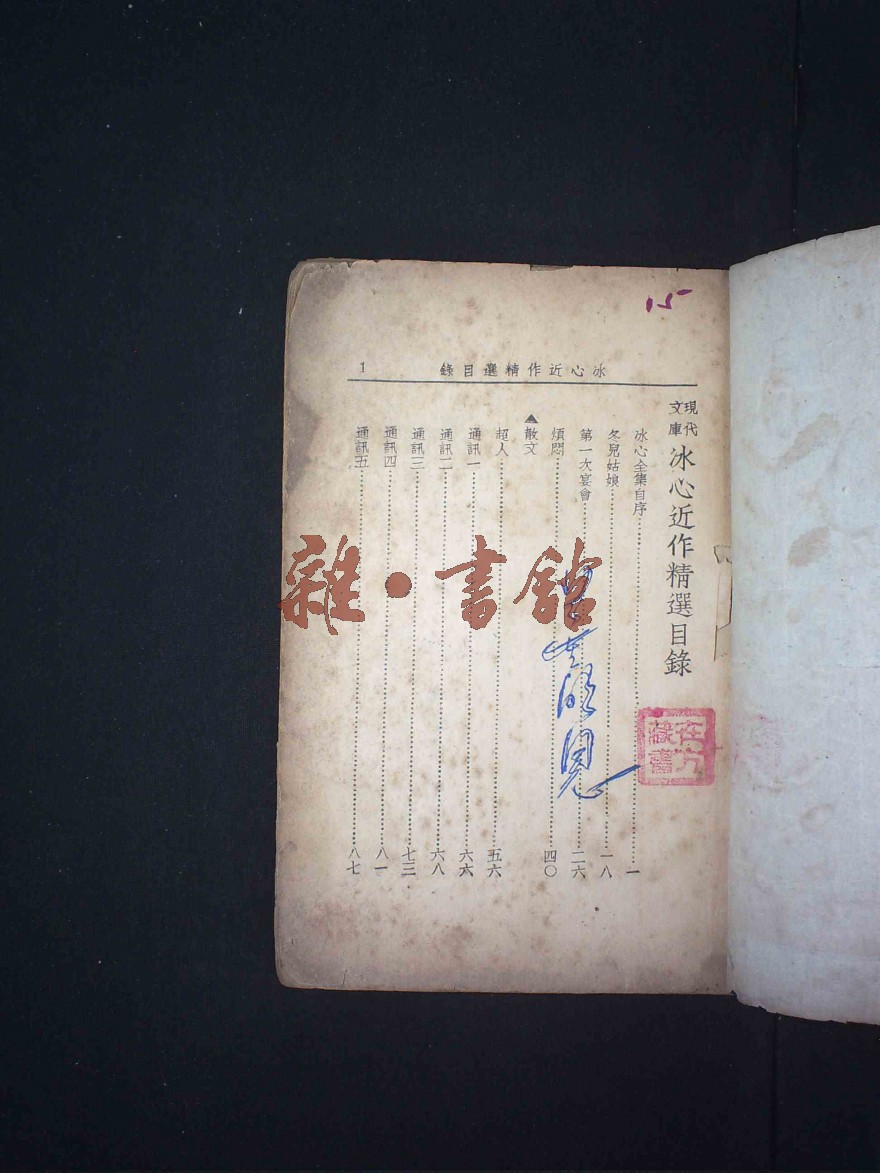 15
冰心近作精選目錄
1
現代文庫 冰心近作精選目錄
冰心全集自序……一
冬兒姑娘……一八
第一次宴會……二六
煩悶……四〇
▲散文
超人……五六
通訊一……六六
通訊二……六八
通訊三……七三
通訊四……八一
通訊五……八七
雜·書館
在方藏書